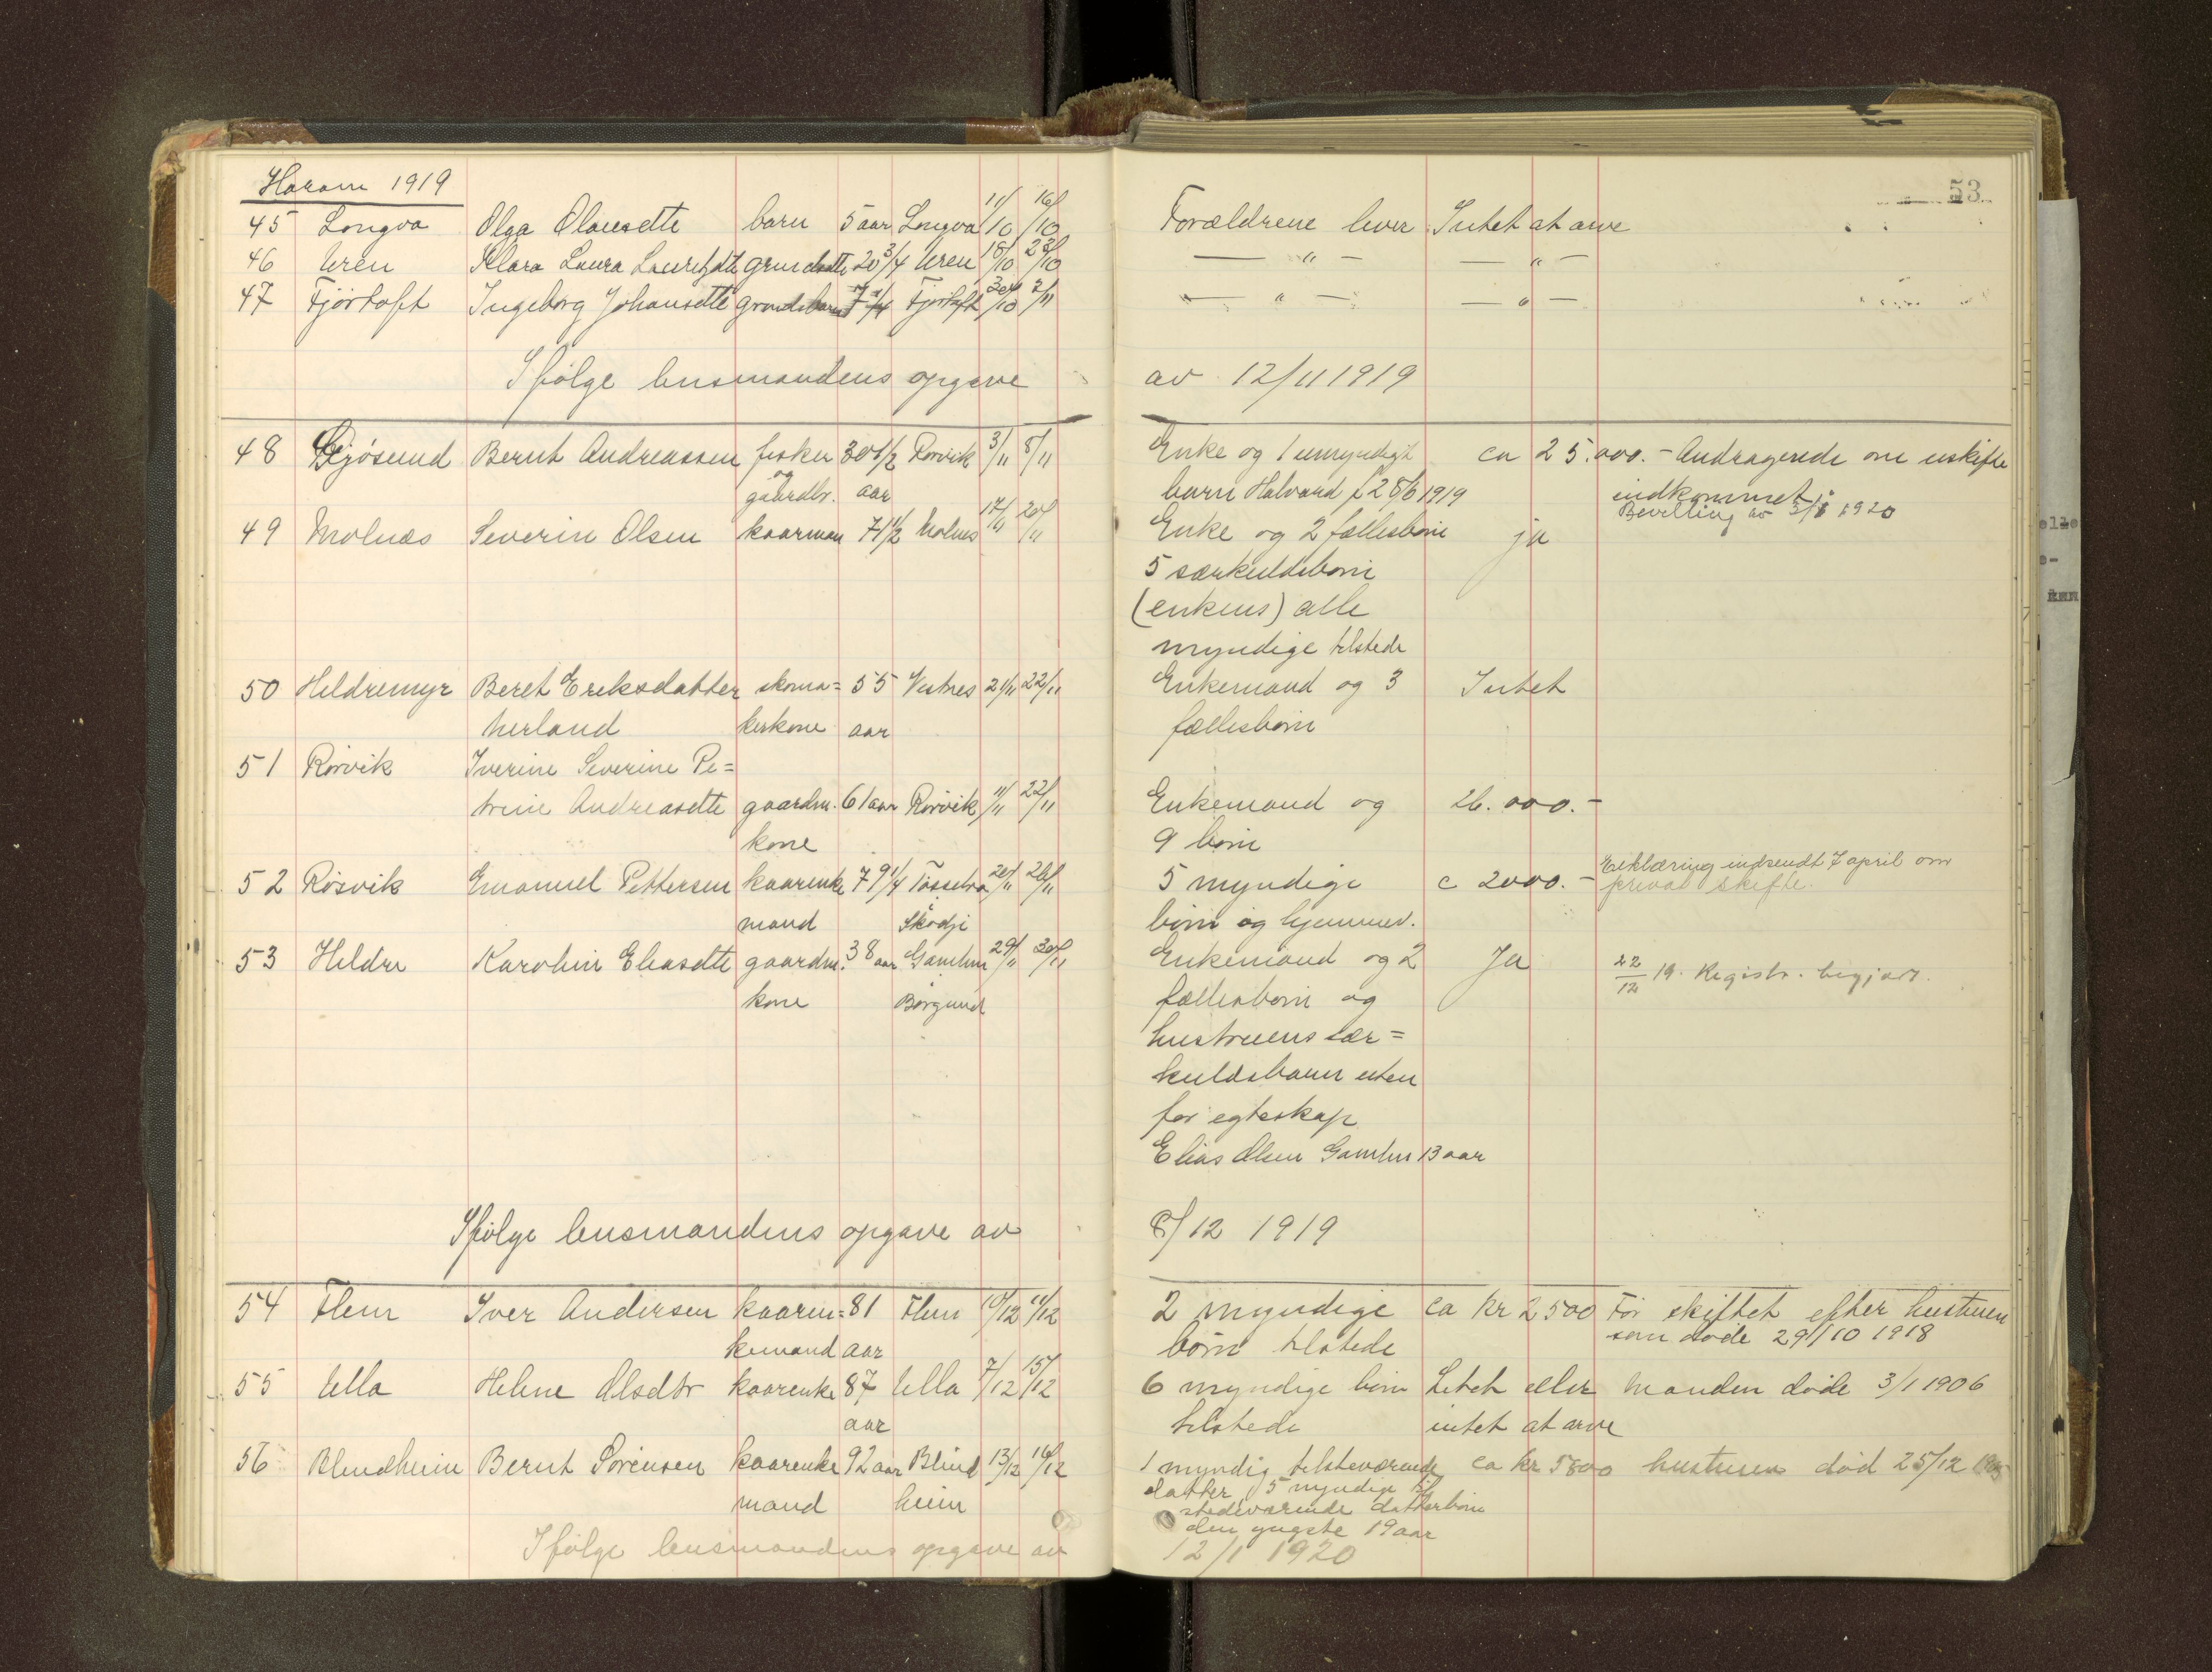 Haram 1919
53
45 Longva Olga Olausdtr barn 5 aar Longva 11/10 16/10 Forældrene lever Intet at arve
46 Uren Klara Laura Lauritzdtr 20 3/4 Uren 18/10 23/10 — " — — " —
47 Fjørtoft Ingeborg Johansdtr Fjørtoft 30/10 2/11 — " — — " —
Ifølge lensmandens opgave av 12/11 1919
48 Bernt Andreassen fisker 30 1/2 Rørvik 3/11 8/11 Enke og 1 umyndigt ca 25.000.- Andragende om uskifte
og
gaardbr. aar barn Halvard f 28/6 1919 indkommet
Bevilling av 3/1 1920
49 Molnæs Severin Olsen kaarman 71 1/2 Molnes 17/11 20/11 Enke og 2 fællesbørn ja
5 særkuldsbørn
(enkens) alle
myndige tilstede
50 Hildremyr Beret Eriksdatter skoma= 55 Vestnes 21/11 22/11 Enkemand og 3 Intet
Uerland kerkone aar fællesbørn
51 Rørvik Iverine Severine Pe=
trine Andreasdtr gaardm. 61 aar Rørvik 11/11 22/11 Enkemand og 26.000.-
kone 9 børn
52 Røsvik Emanuel Pettersen kaarenke 79 1/4 Tøssebro 20/11 26/11 5 myndige c 2000.- Erklæring indsendt 7 april om
privat skifte.
mand Skodje børn og hjemmev.
53 Hildre Karoline Eliasdtr gaardm. 38 aar Gamlem 29/11 30/11 Enkemand og 2 Ja 22/12 19. Registr. begjært.
kone Borgund fællesbørn og
hustruens sær=
kuldsbarn uten
for egteskap
Elias Olsen Gamlem 13 aar
Ifølge lensmandens opgave av 8/12 1919
54 Flem Iver Andersen kaaren= 81 Flem 10/12 11/12 2 myndige ca kr 2500 For skiftet efter hustruen
kemand aar børn tilstede som døde 29/10 1918
55 Ulla Helene Olsdtr kaarenke 87 Ulla 7/12 15/12 6 myndige børn Litet eller Manden døde 3/1 1906
aar tilstede intet at arve
56 Blindheim Bernt Sørensen kaarenke 92 aar Blind 13/12 16/12 1 myndig tilstedeværende ca kr 5800 hustruen død 25/12
mand heim datter, 5 myndige til
stedeværende datterbørn
den yngste 19 aar
Ifølge lensmandens opgave av 12/1 1920